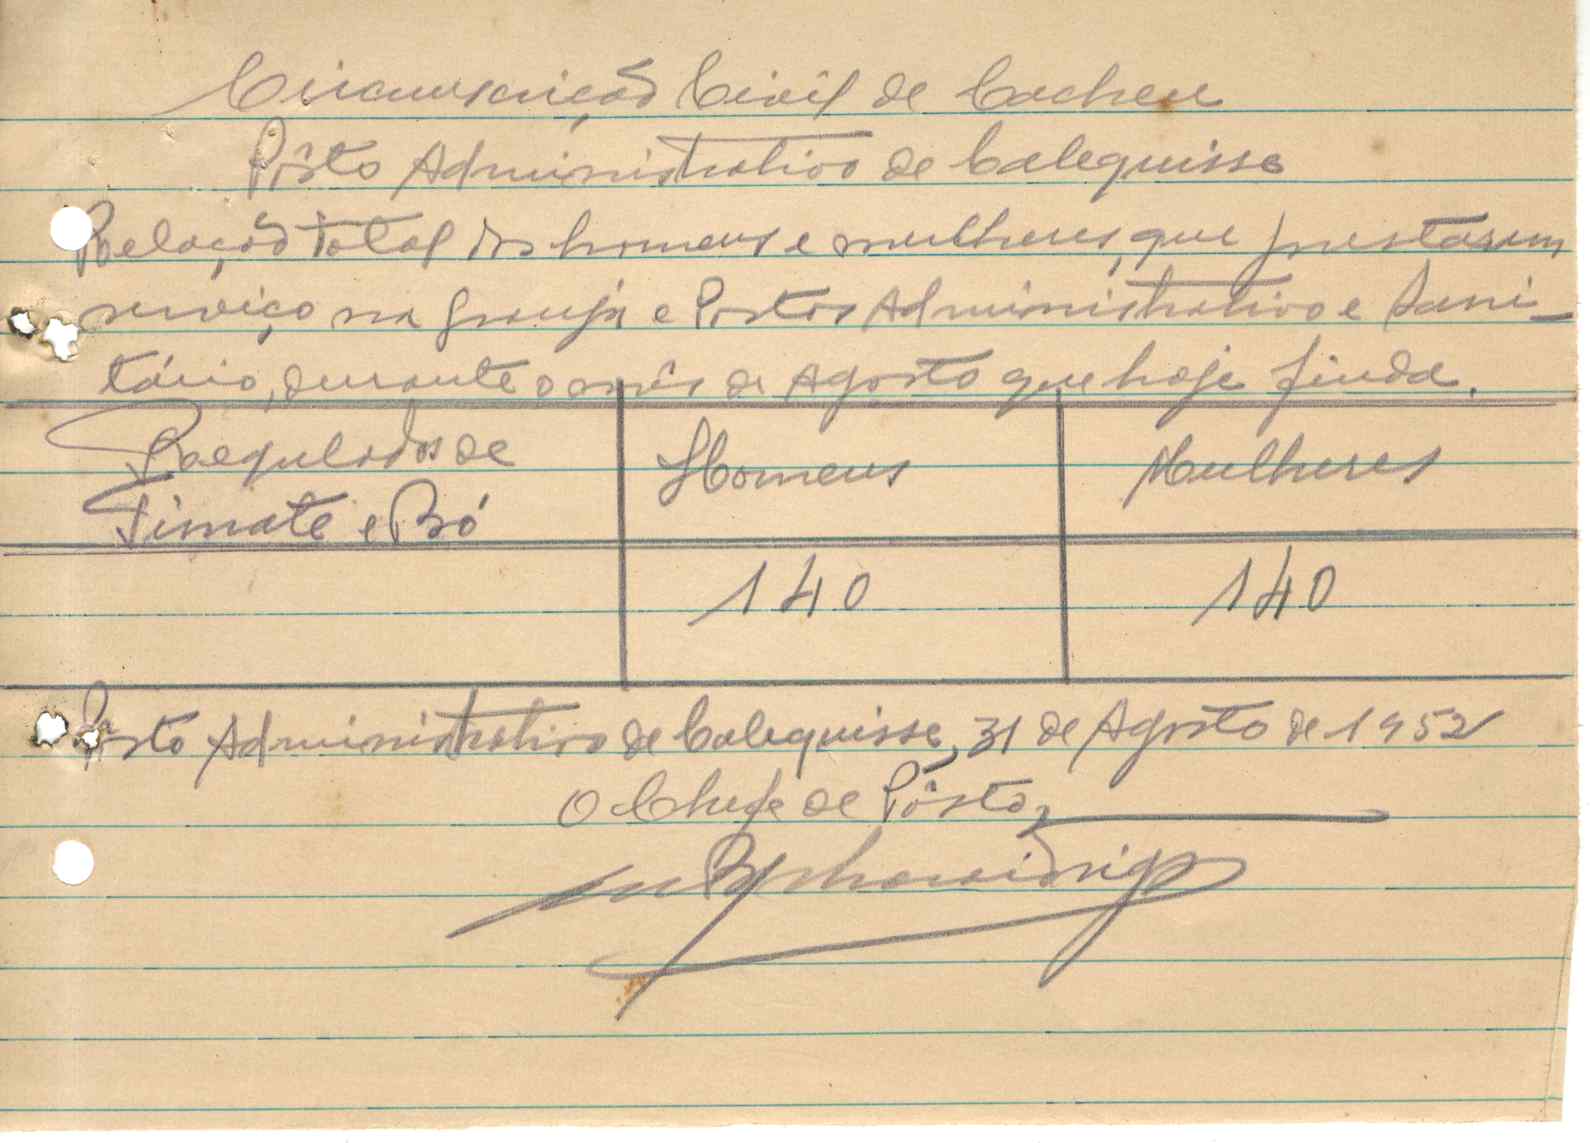 Circunscrição Civil de Cacheu
Pôsto Administrativo de Calequisse
Relação total dos homens e mulheres, que prestaram
serviço na granja e Postos Administrativo e Sani-
tário, durante o mês de Agosto que hoje finda.
Regulados de Homens Mulheres
Timate e Bó
140 140
Pôsto Administrativo de Calequisse, 31 de Agosto de 1952
O Chefe de Pôsto,